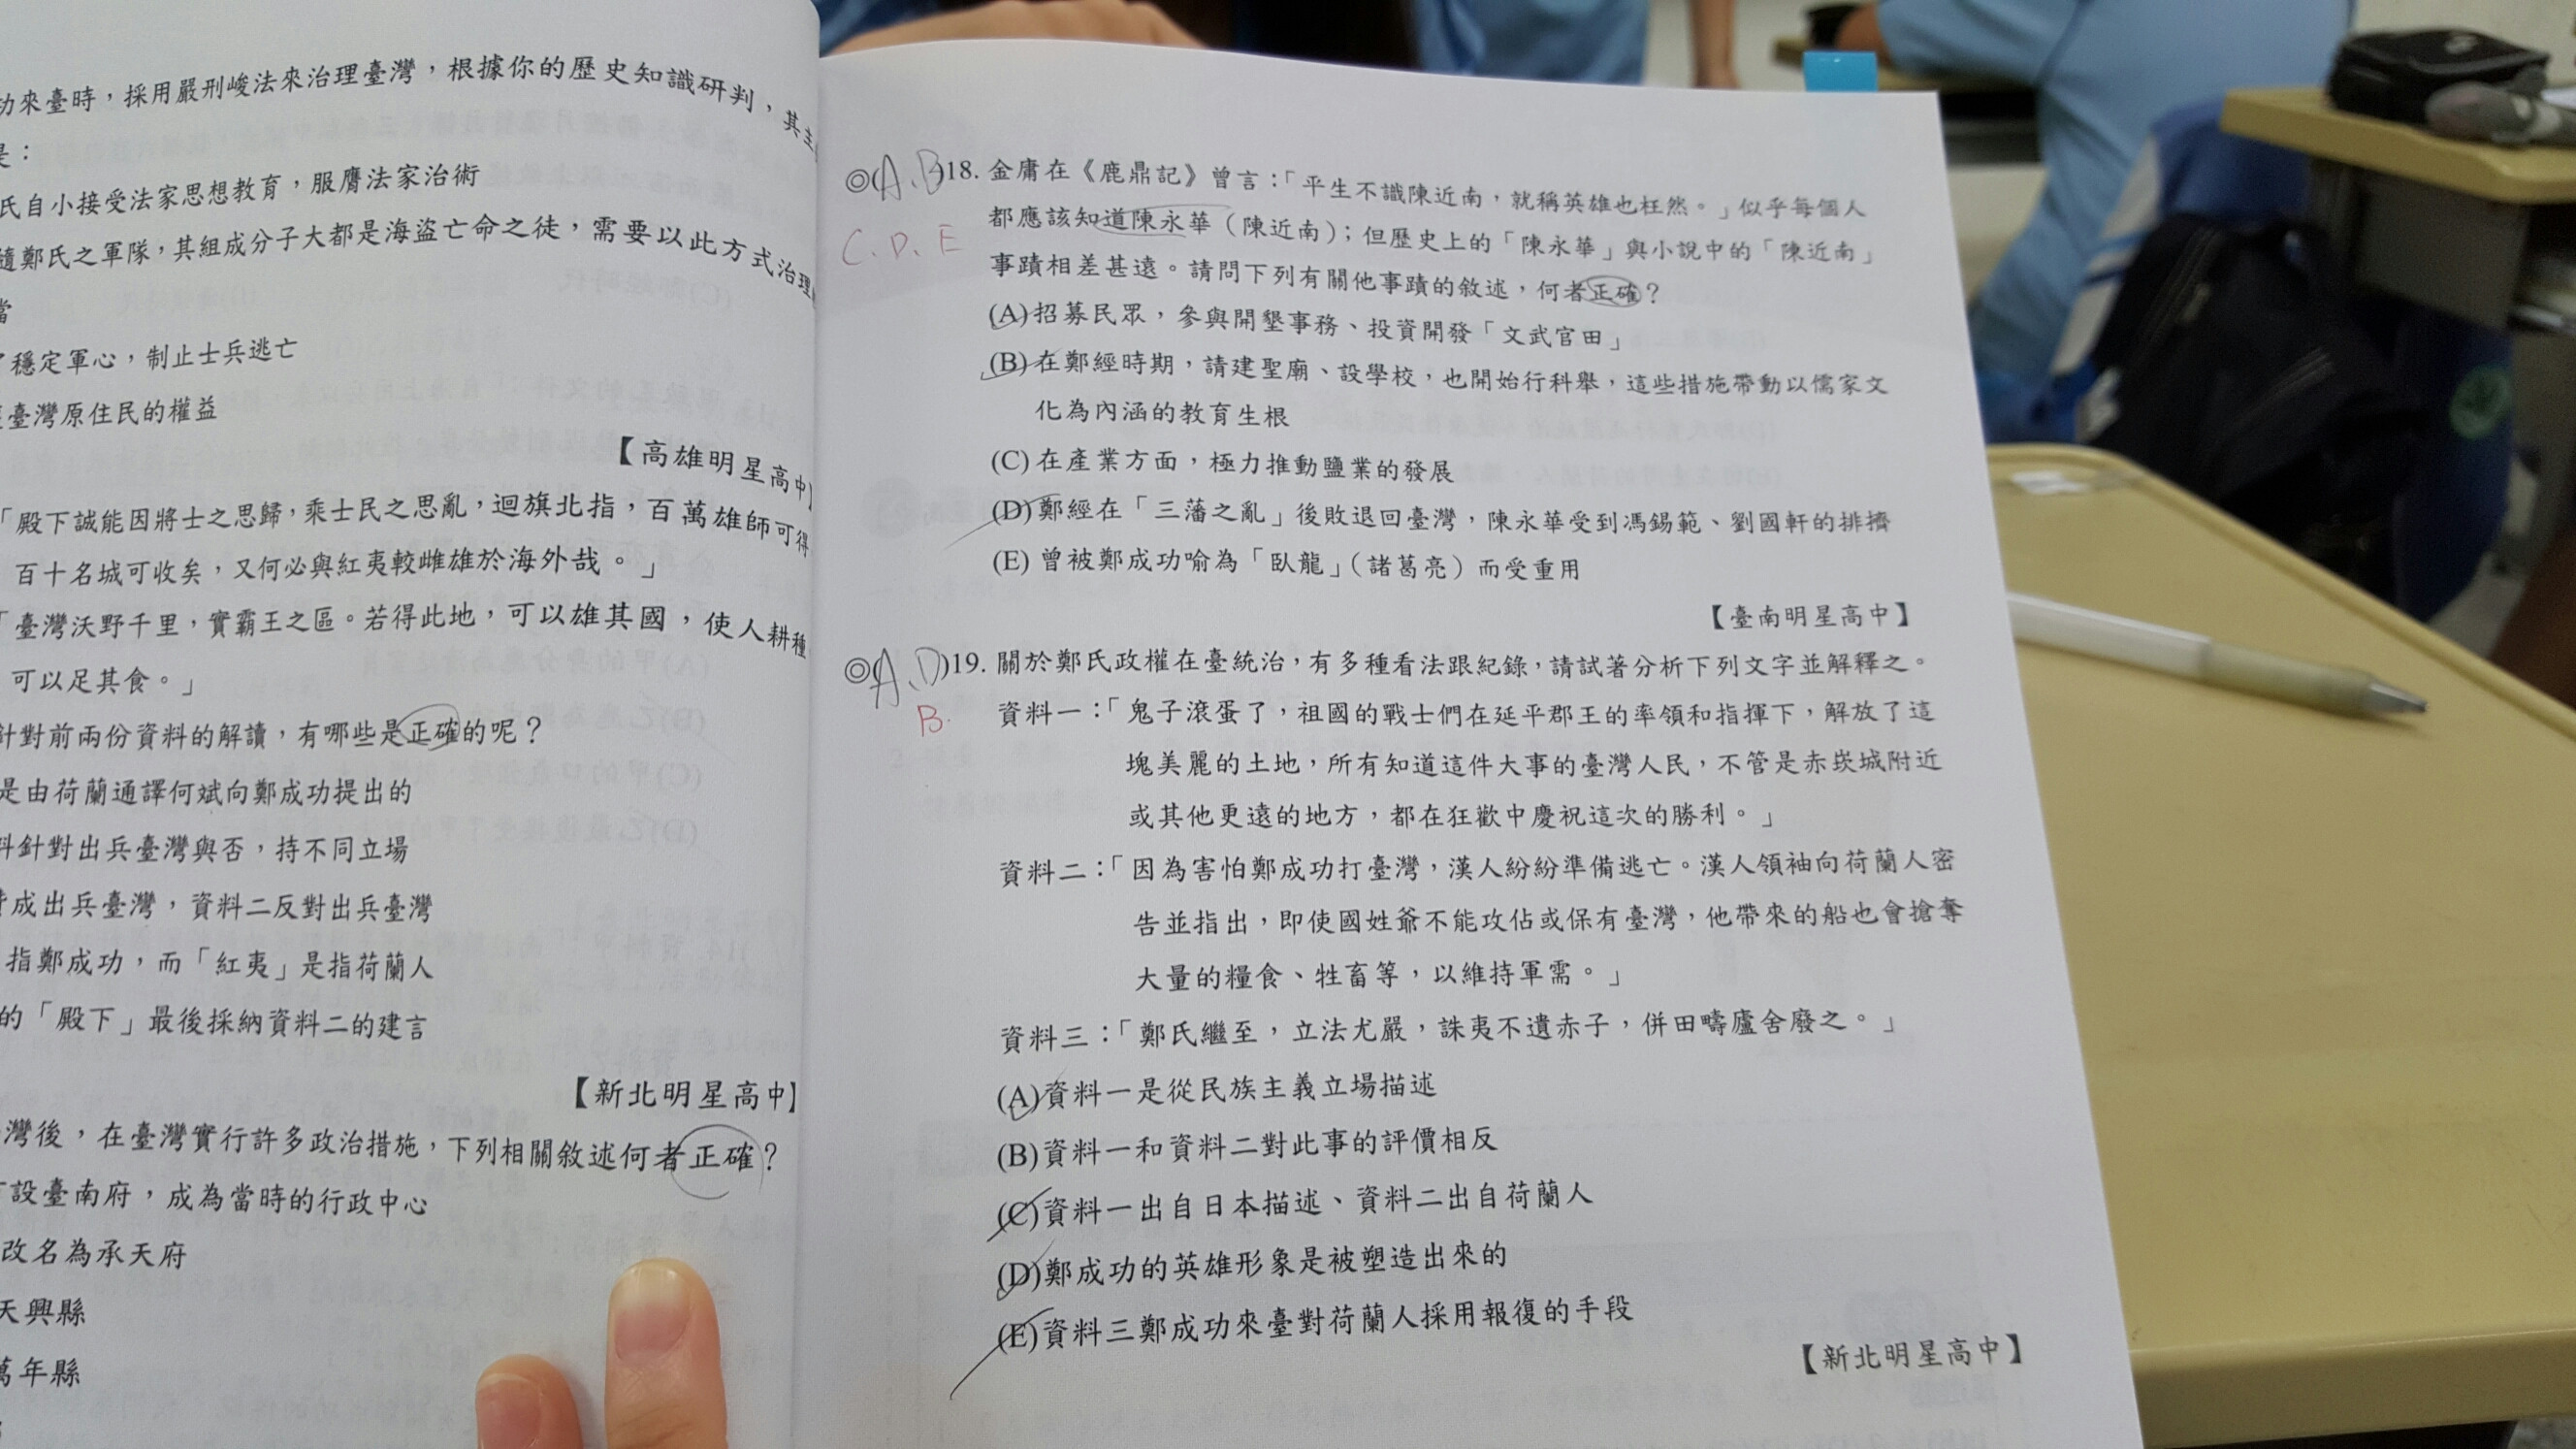 功來臺時，採用嚴刑峻法來治理臺灣，根據你的歷史知識研判，其主
是：
氏自小接受法家思想教育，服膺法家治術
隨鄭氏之軍隊，其組成分子大都是海盜亡命之徒，需要以此方式治理
當
了穩定軍心，制止士兵逃亡
臺灣原住民的權益
【高雄明星高中】
「殿下誠能因將士之思歸，乘士民之思亂，迴旗北指，百萬雄師可得
百十名城可收矣，又何必與紅夷較雌雄於海外哉。」
「臺灣沃野千里，實霸王之區。若得此地，可以雄其國，使人耕種
可以足其食。」
針對前兩份資料的解讀，有哪些是正確的呢？
是由荷蘭通譯何斌向鄭成功提出的
料針對出兵臺灣與否，持不同立場
成出兵臺灣，資料二反對出兵臺灣
指鄭成功，而「紅夷」是指荷蘭人
的「殿下」最後採納資料二的建言
【新北明星高中】
灣後，在臺灣實行許多政治措施，下列相關敘述何者正確？
設臺南府，成為當時的行政中心
改名為承天府
天興縣
萬年縣
◎(A、B)18. 金庸在《鹿鼎記》曾言：「平生不識陳近南，就稱英雄也枉然。」似乎每個人
C、D、E
都應該知道陳永華（陳近南）；但歷史上的「陳永華」與小說中的「陳近南」
事蹟相差甚遠。請問下列有關他事蹟的敘述，何者正確？
(A)招募民眾，參與開墾事務、投資開發「文武官田」
(B)在鄭經時期，請建聖廟、設學校，也開始行科舉，這些措施帶動以儒家文
化為內涵的教育生根
(C)在產業方面，極力推動鹽業的發展
(D)鄭經在「三藩之亂」後敗退回臺灣，陳永華受到馮錫範、劉國軒的排擠
(E)曾被鄭成功喻為「臥龍」（諸葛亮）而受重用
【臺南明星高中】
◎(A、D)19. 關於鄭氏政權在臺統治，有多種看法跟紀錄，請試著分析下列文字並解釋之。
B.
資料一：「鬼子滾蛋了，祖國的戰士們在延平郡王的率領和指揮下，解放了這
塊美麗的土地，所有知道這件大事的臺灣人民，不管是赤崁城附近
或其他更遠的地方，都在狂歡中慶祝這次的勝利。」
資料二：「因為害怕鄭成功打臺灣，漢人紛紛準備逃亡。漢人領袖向荷蘭人密
告並指出，即使國姓爺不能攻佔或保有臺灣，他帶來的船也會搶奪
大量的糧食、牲畜等，以維持軍需。」
資料三：「鄭氏繼至，立法尤嚴，誅夷不遺赤子，併田疇廬舍廢之。」
(A)資料一是從民族主義立場描述
(B)資料一和資料二對此事的評價相反
(C)資料一出自日本描述、資料二出自荷蘭人
(D)鄭成功的英雄形象是被塑造出來的
(E)資料三鄭成功來臺對荷蘭人採用報復的手段
【新北明星高中】